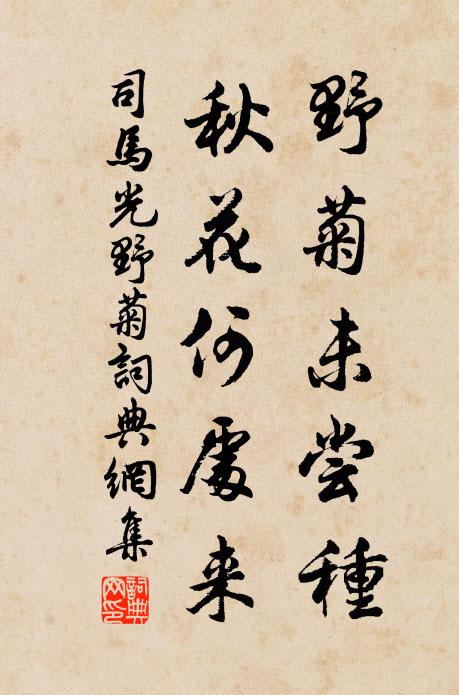 野菊未尝種
秋花何處来
司馬光野菊詞典網集
詞典网印